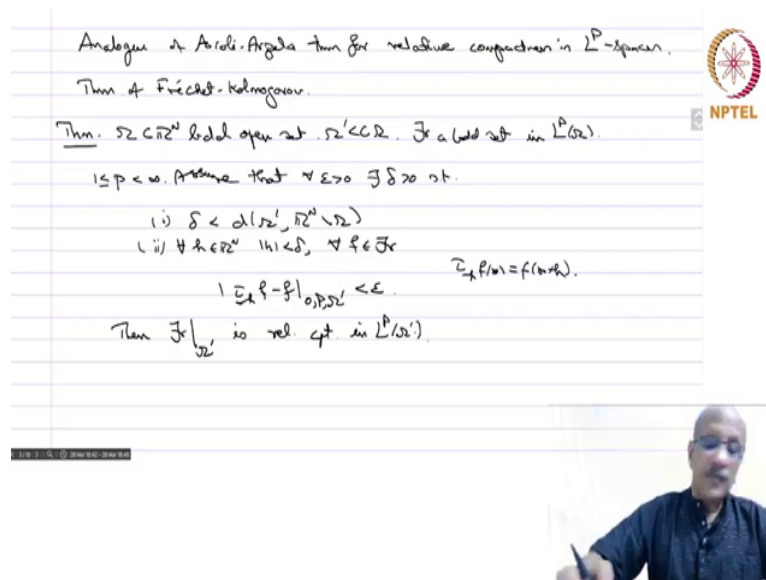 Analogue of Ascoli-Arzela thm for relative compactness in L^p-spaces.
Thm of Fréchet-Kolmogorov.
NPTEL
Thm. Ω ⊂ ℝ^N bdd open set. Ω' ⊂⊂ Ω. ℱ a bdd set in L^p(Ω).
1 ≤ p < ∞. Assume that ∀ ε>0 ∃ δ>0 st.
(i) δ < d(Ω', ℝ^N \ Ω)
(ii) ∀ h ∈ ℝ^N |h| < δ, ∀ f ∈ ℱ
τ_{-h} f(x) = f(x+h).
| τ_{-h} f - f |_{0,p,Ω'} < ε.
Then ℱ|_{Ω'} is rel. cpt. in L^p(Ω').